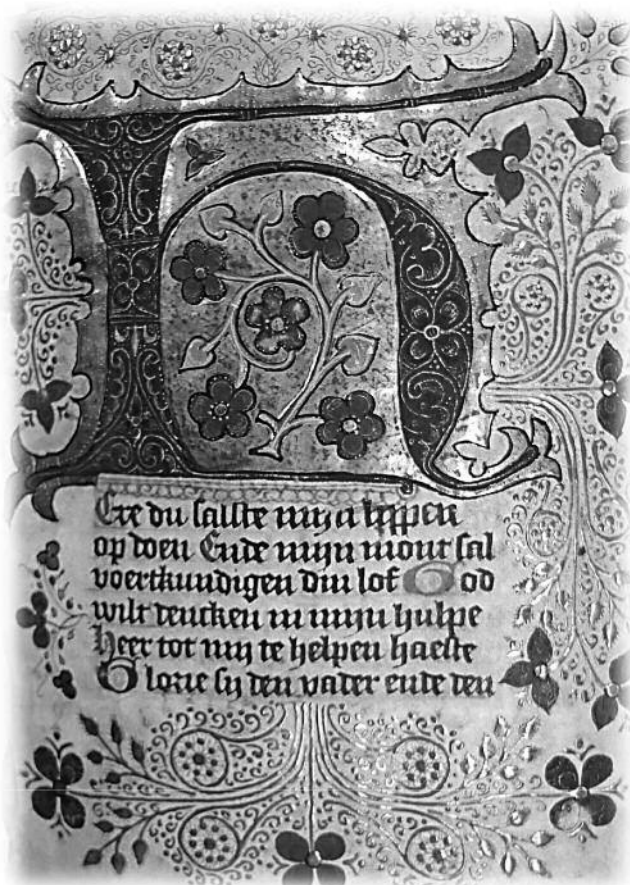 H
Ere du salste mijn lippen
op doen Ende mijn mont sal
voertkundigen din lof God
wilt dencken in mijn hulpe
heer tot mij te helpen haeste
Glorie sij den vader ende den